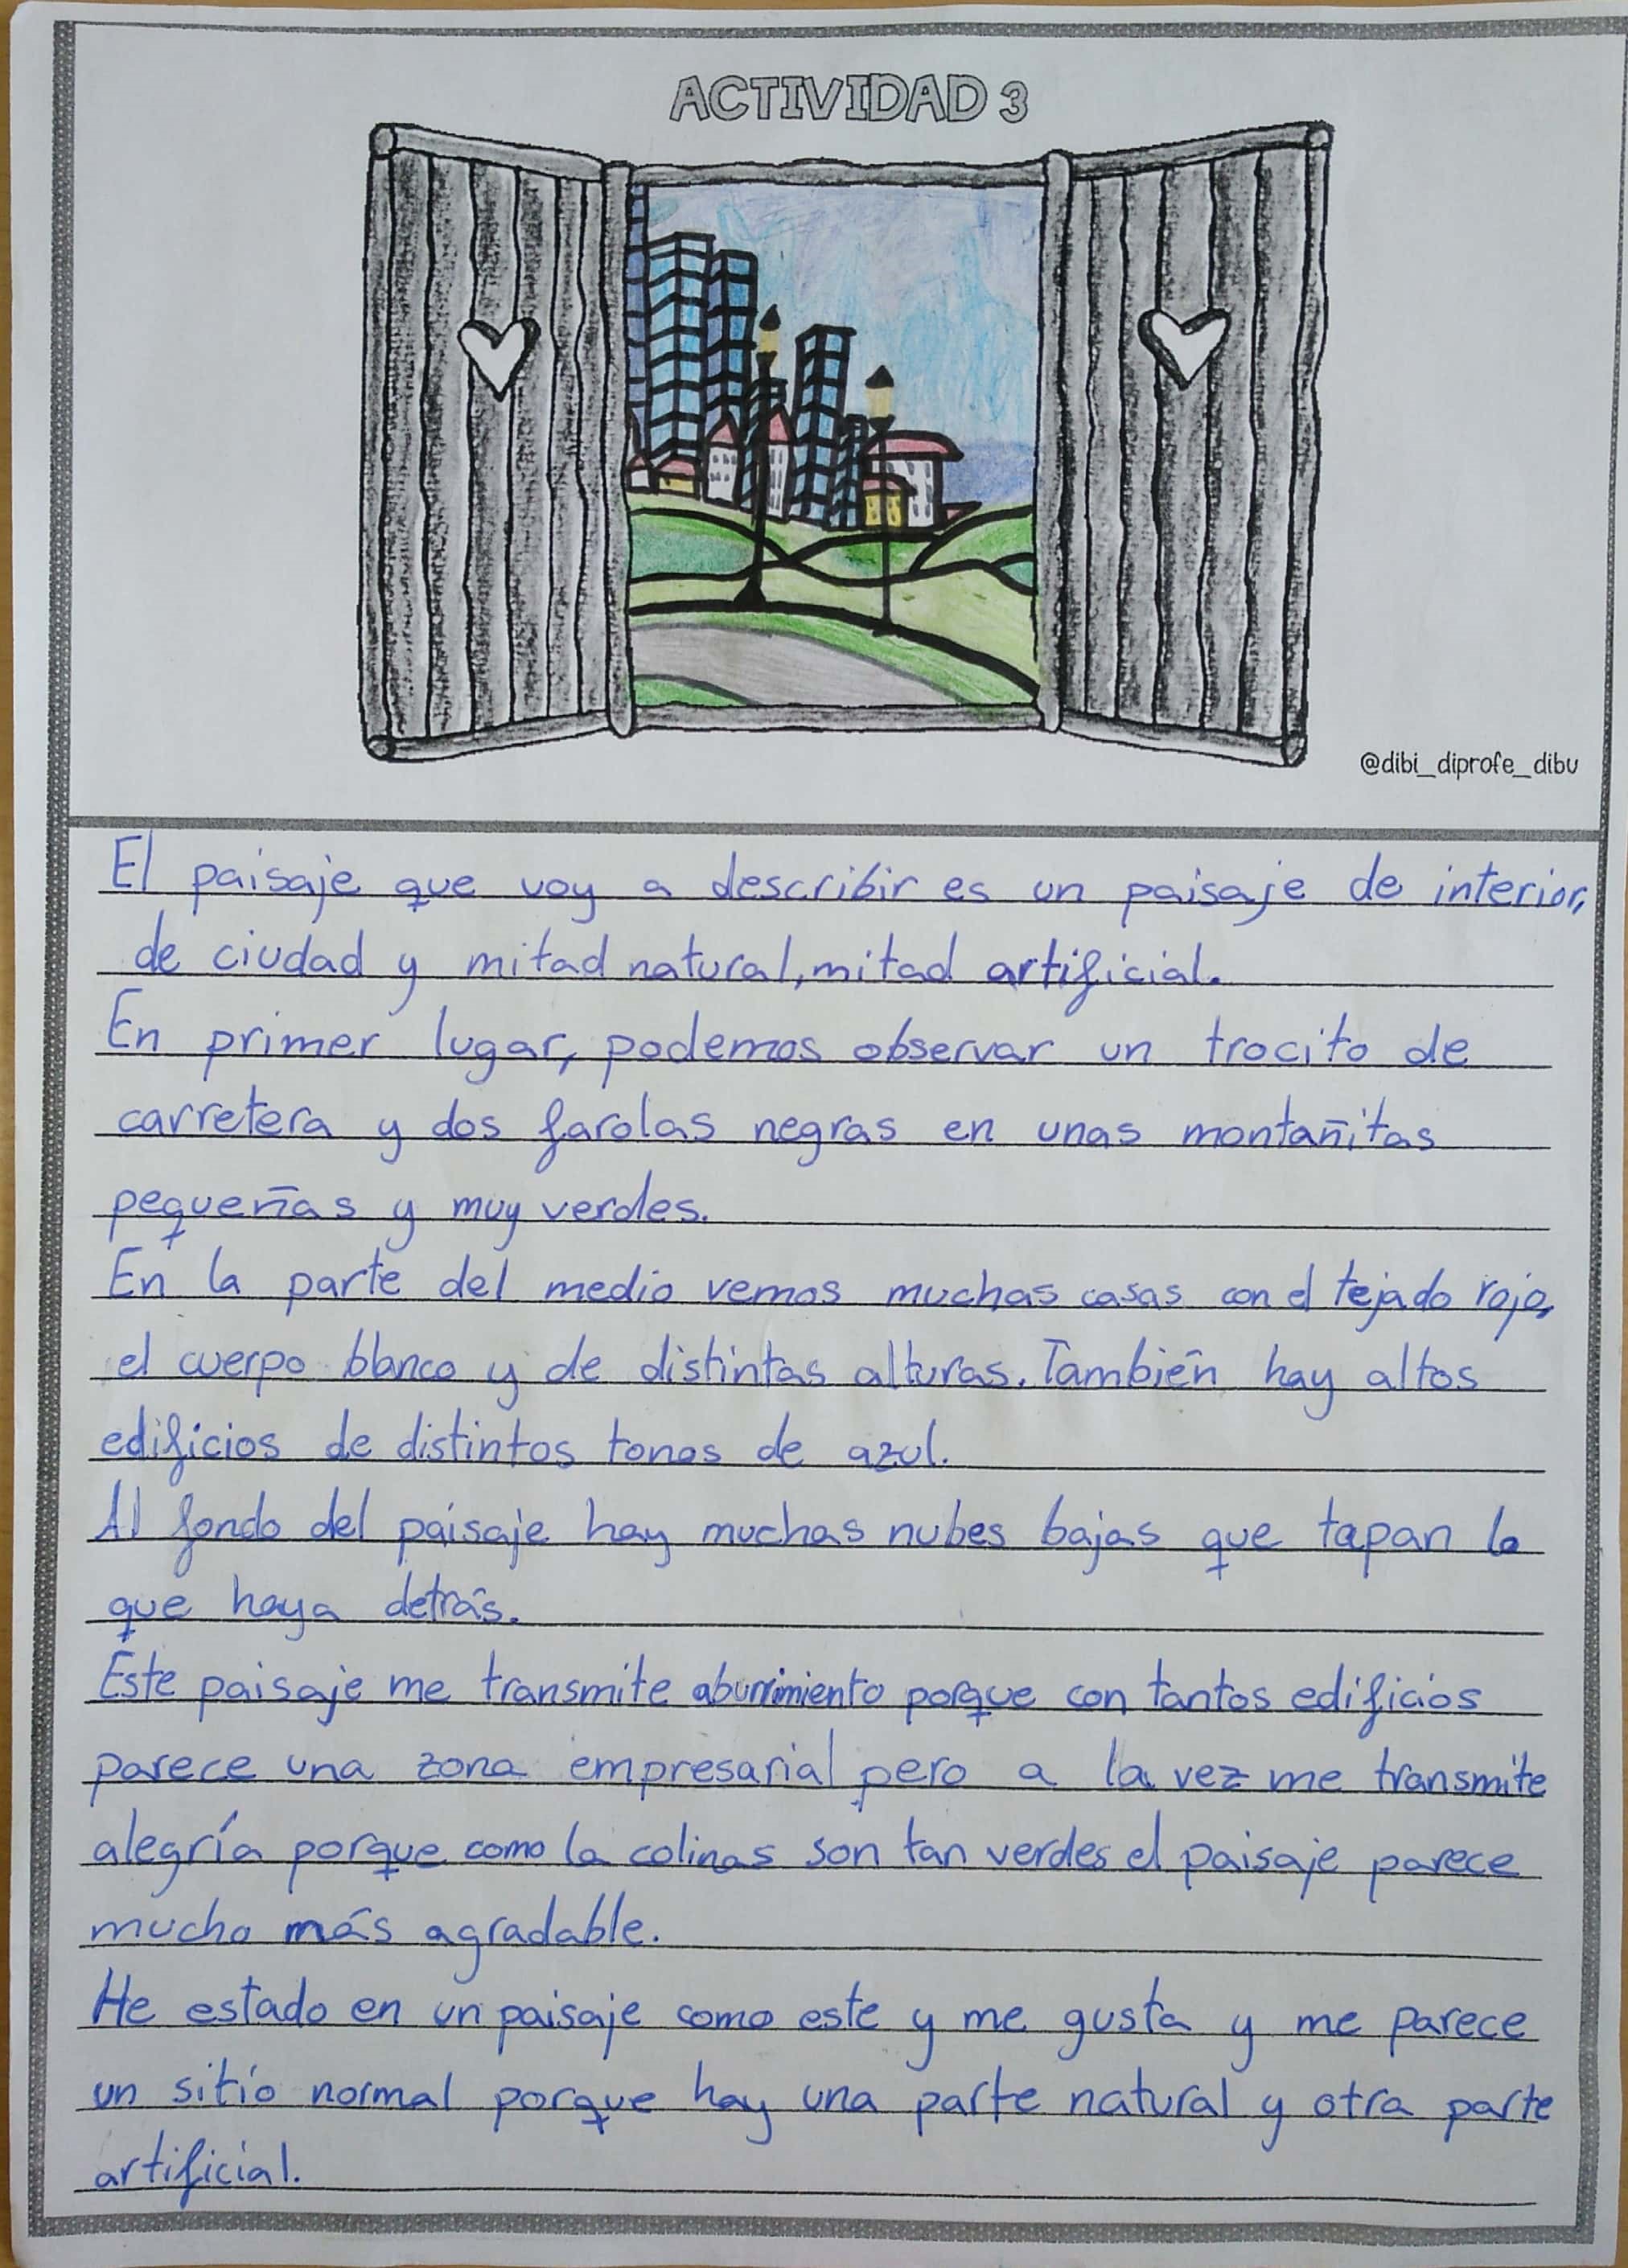 ACTIVIDAD 3
@dibi_diprofe_dibu
El paisaje que voy a describir es un paisaje de interior,
de ciudad y mitad natural, mitad artificial.
En primer lugar, podemos observar un trocito de
carretera y dos farolas negras en unas montañitas
pequeñas y muy verdes.
En la parte del medio vemos muchas casas con el tejado rojo,
el cuerpo blanco y de distintas alturas. También hay altos
edificios de distintos tonos de azul.
Al fondo del paisaje hay muchas nubes bajas que tapan lo
que haya detrás.
Este paisaje me transmite aburrimiento porque con tantos edificios
parece una zona empresarial pero a la vez me transmite
alegría porque como la colinas son tan verdes el paisaje parece
mucho más agradable.
He estado en un paisaje como este y me gusta y me parece
un sitio normal porque hay una parte natural y otra parte
artificial.